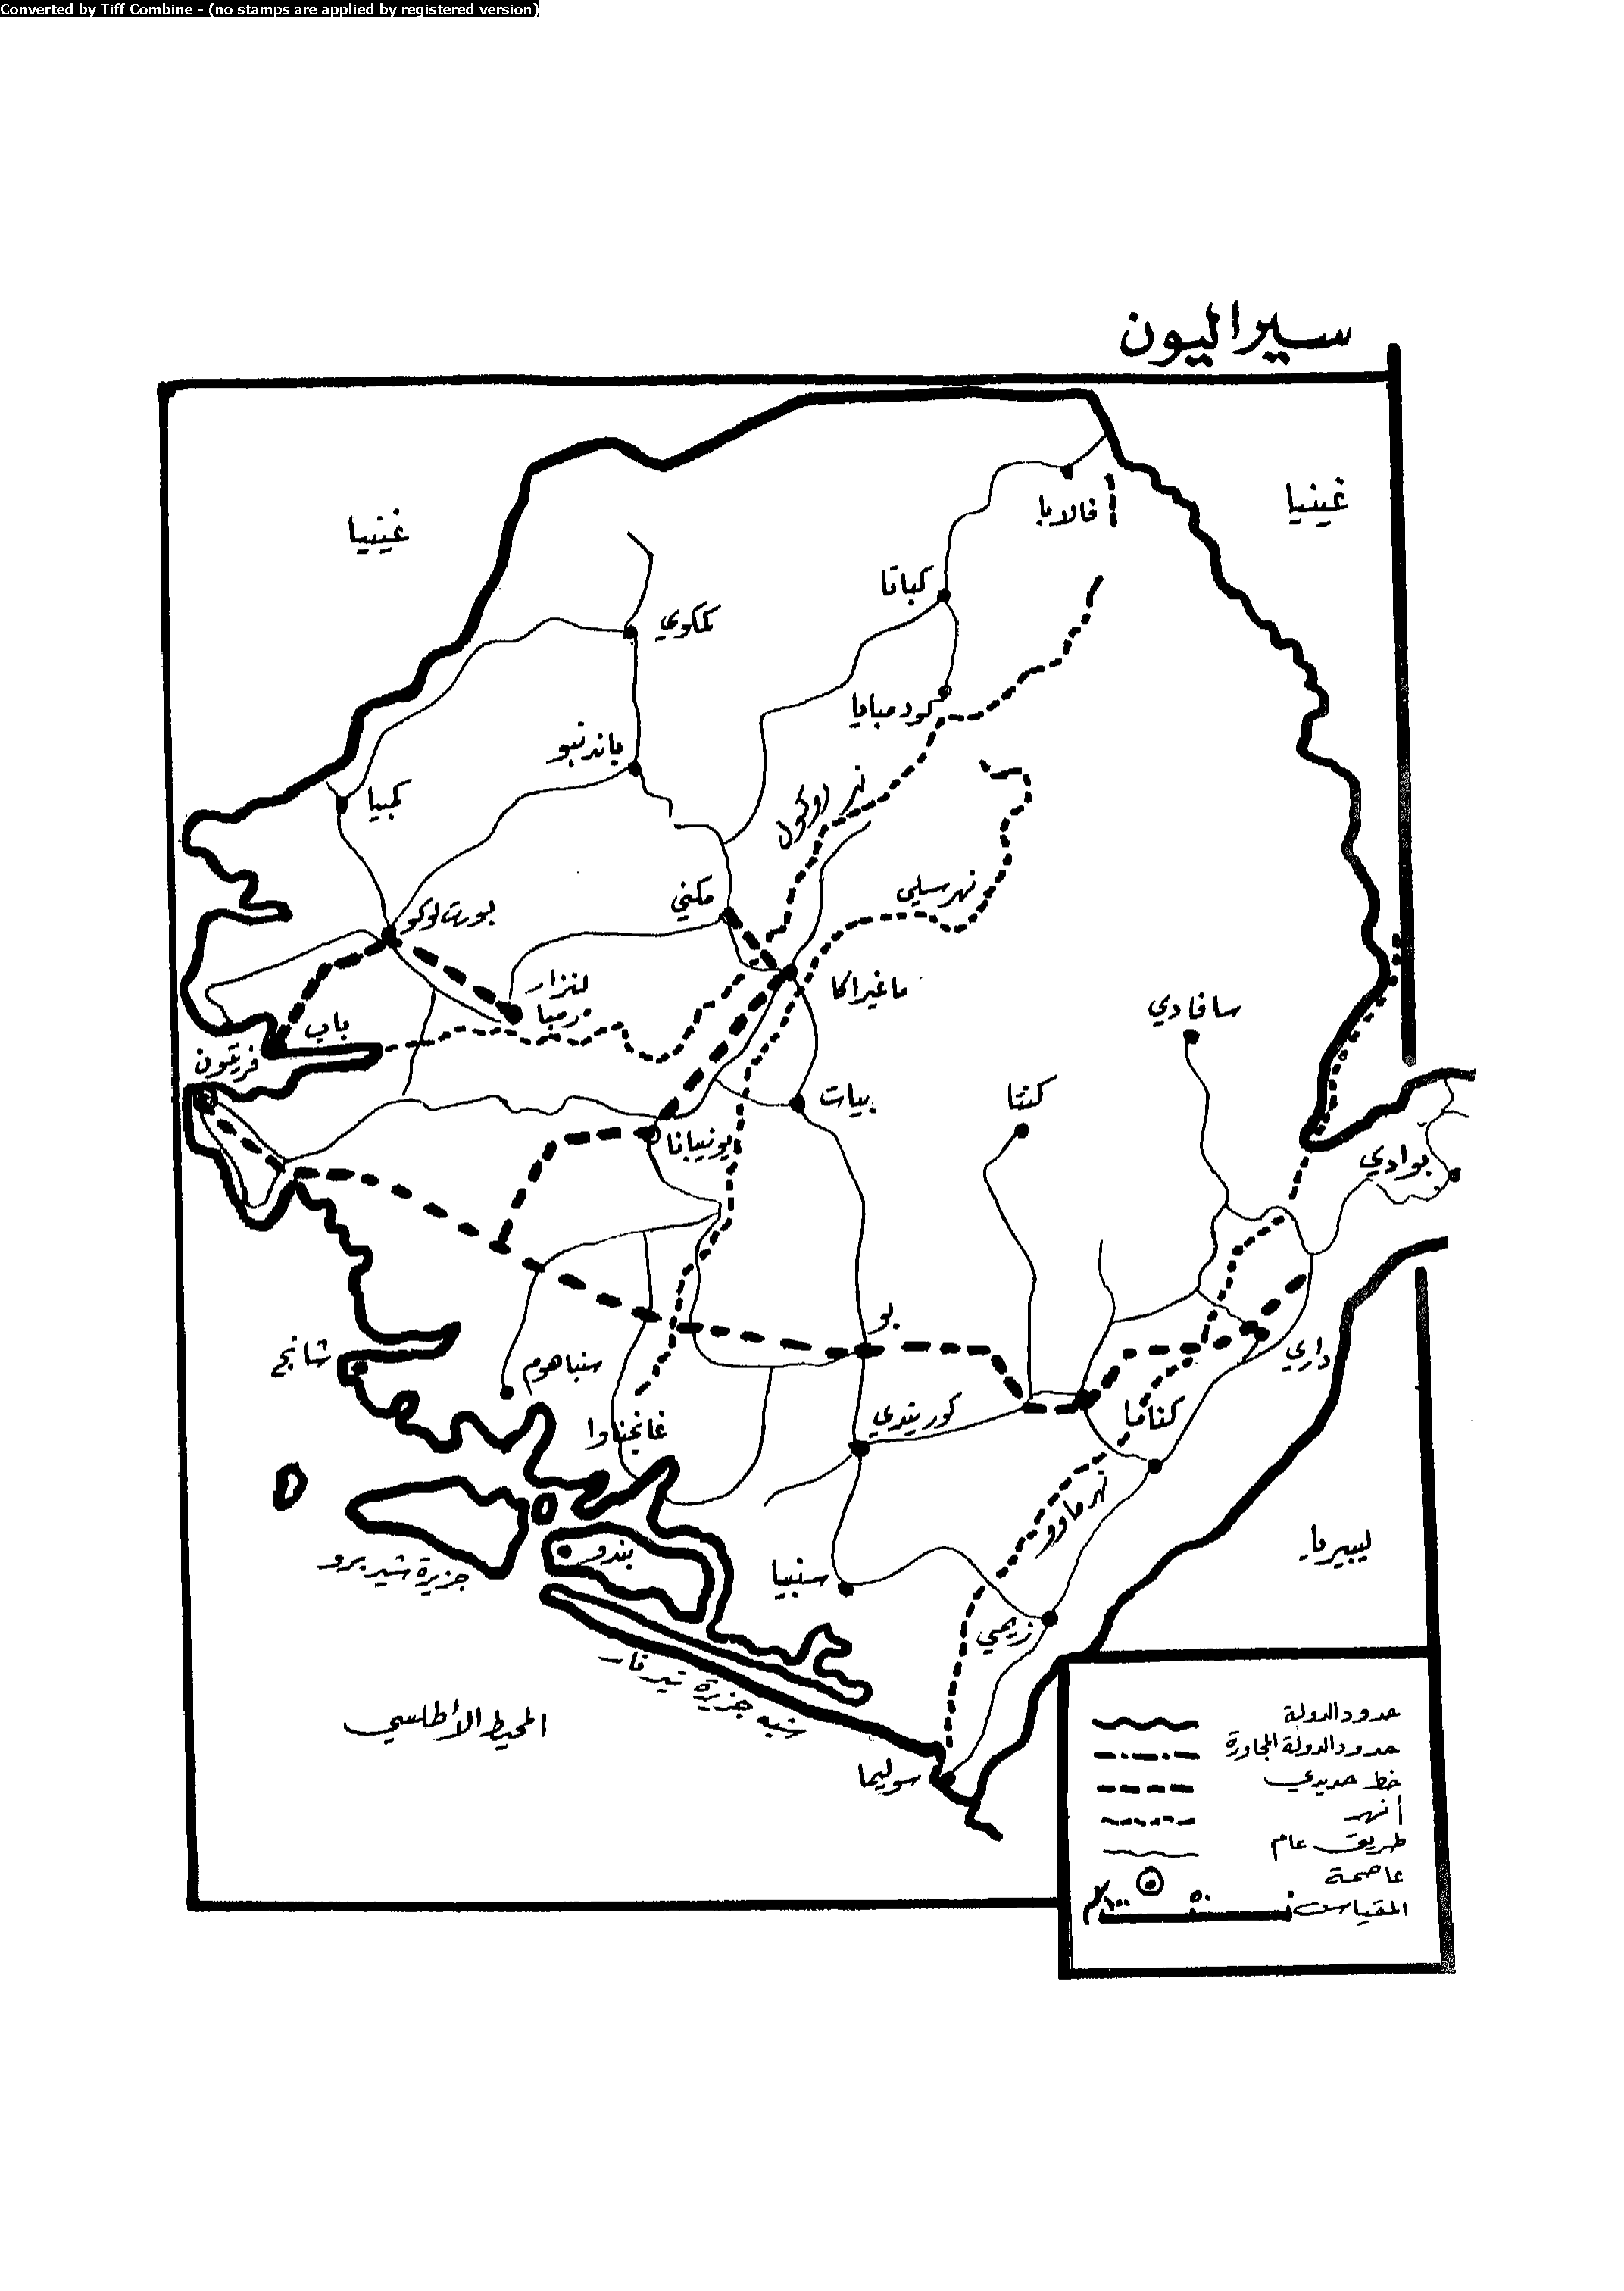 Converted by Tiff Combine - (no stamps are applied by registered version)
سيراليون
غينيا
غينيا
فالابا
كباتا
كمكوي
كودمبايا
باندتبو
كمبيا
نهر روكول
نهر سلي
مكني
بورت لوكو
ماغبراكا
لنزار
درمبا
سافادي
باب
فريتون
كنتا
بيات
يونيبانا
بوادي
بو
داري
شانج
سنباهوم
كوريندي
كناما
غانجناوا
نهر ماوو
ليبيريا
جزيرة شيربرو
بندو
سنبيا
زيمي
شبه جزيرة تيرنار
المحيط الأطلسي
سوليما
حدود الدولة
حدود الدولة المجاورة
خط حديدي
أنهر
طريق عام
عاصمة
المقياس
٠ ٥٠ ١٠٠ كم